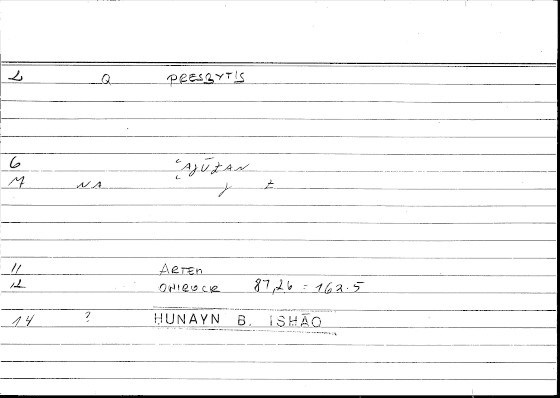 2 Q PRESBYTIS
6 ʿAJŪZAN
M NA ʿ j z
11 ARTEM
12 ONIROCR 87,26 = 162.5
14 ? HUNAYN B. ISHĀQ